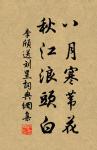 八月寒苇花
秋江浪头白
李颀送刘昱詞典網集